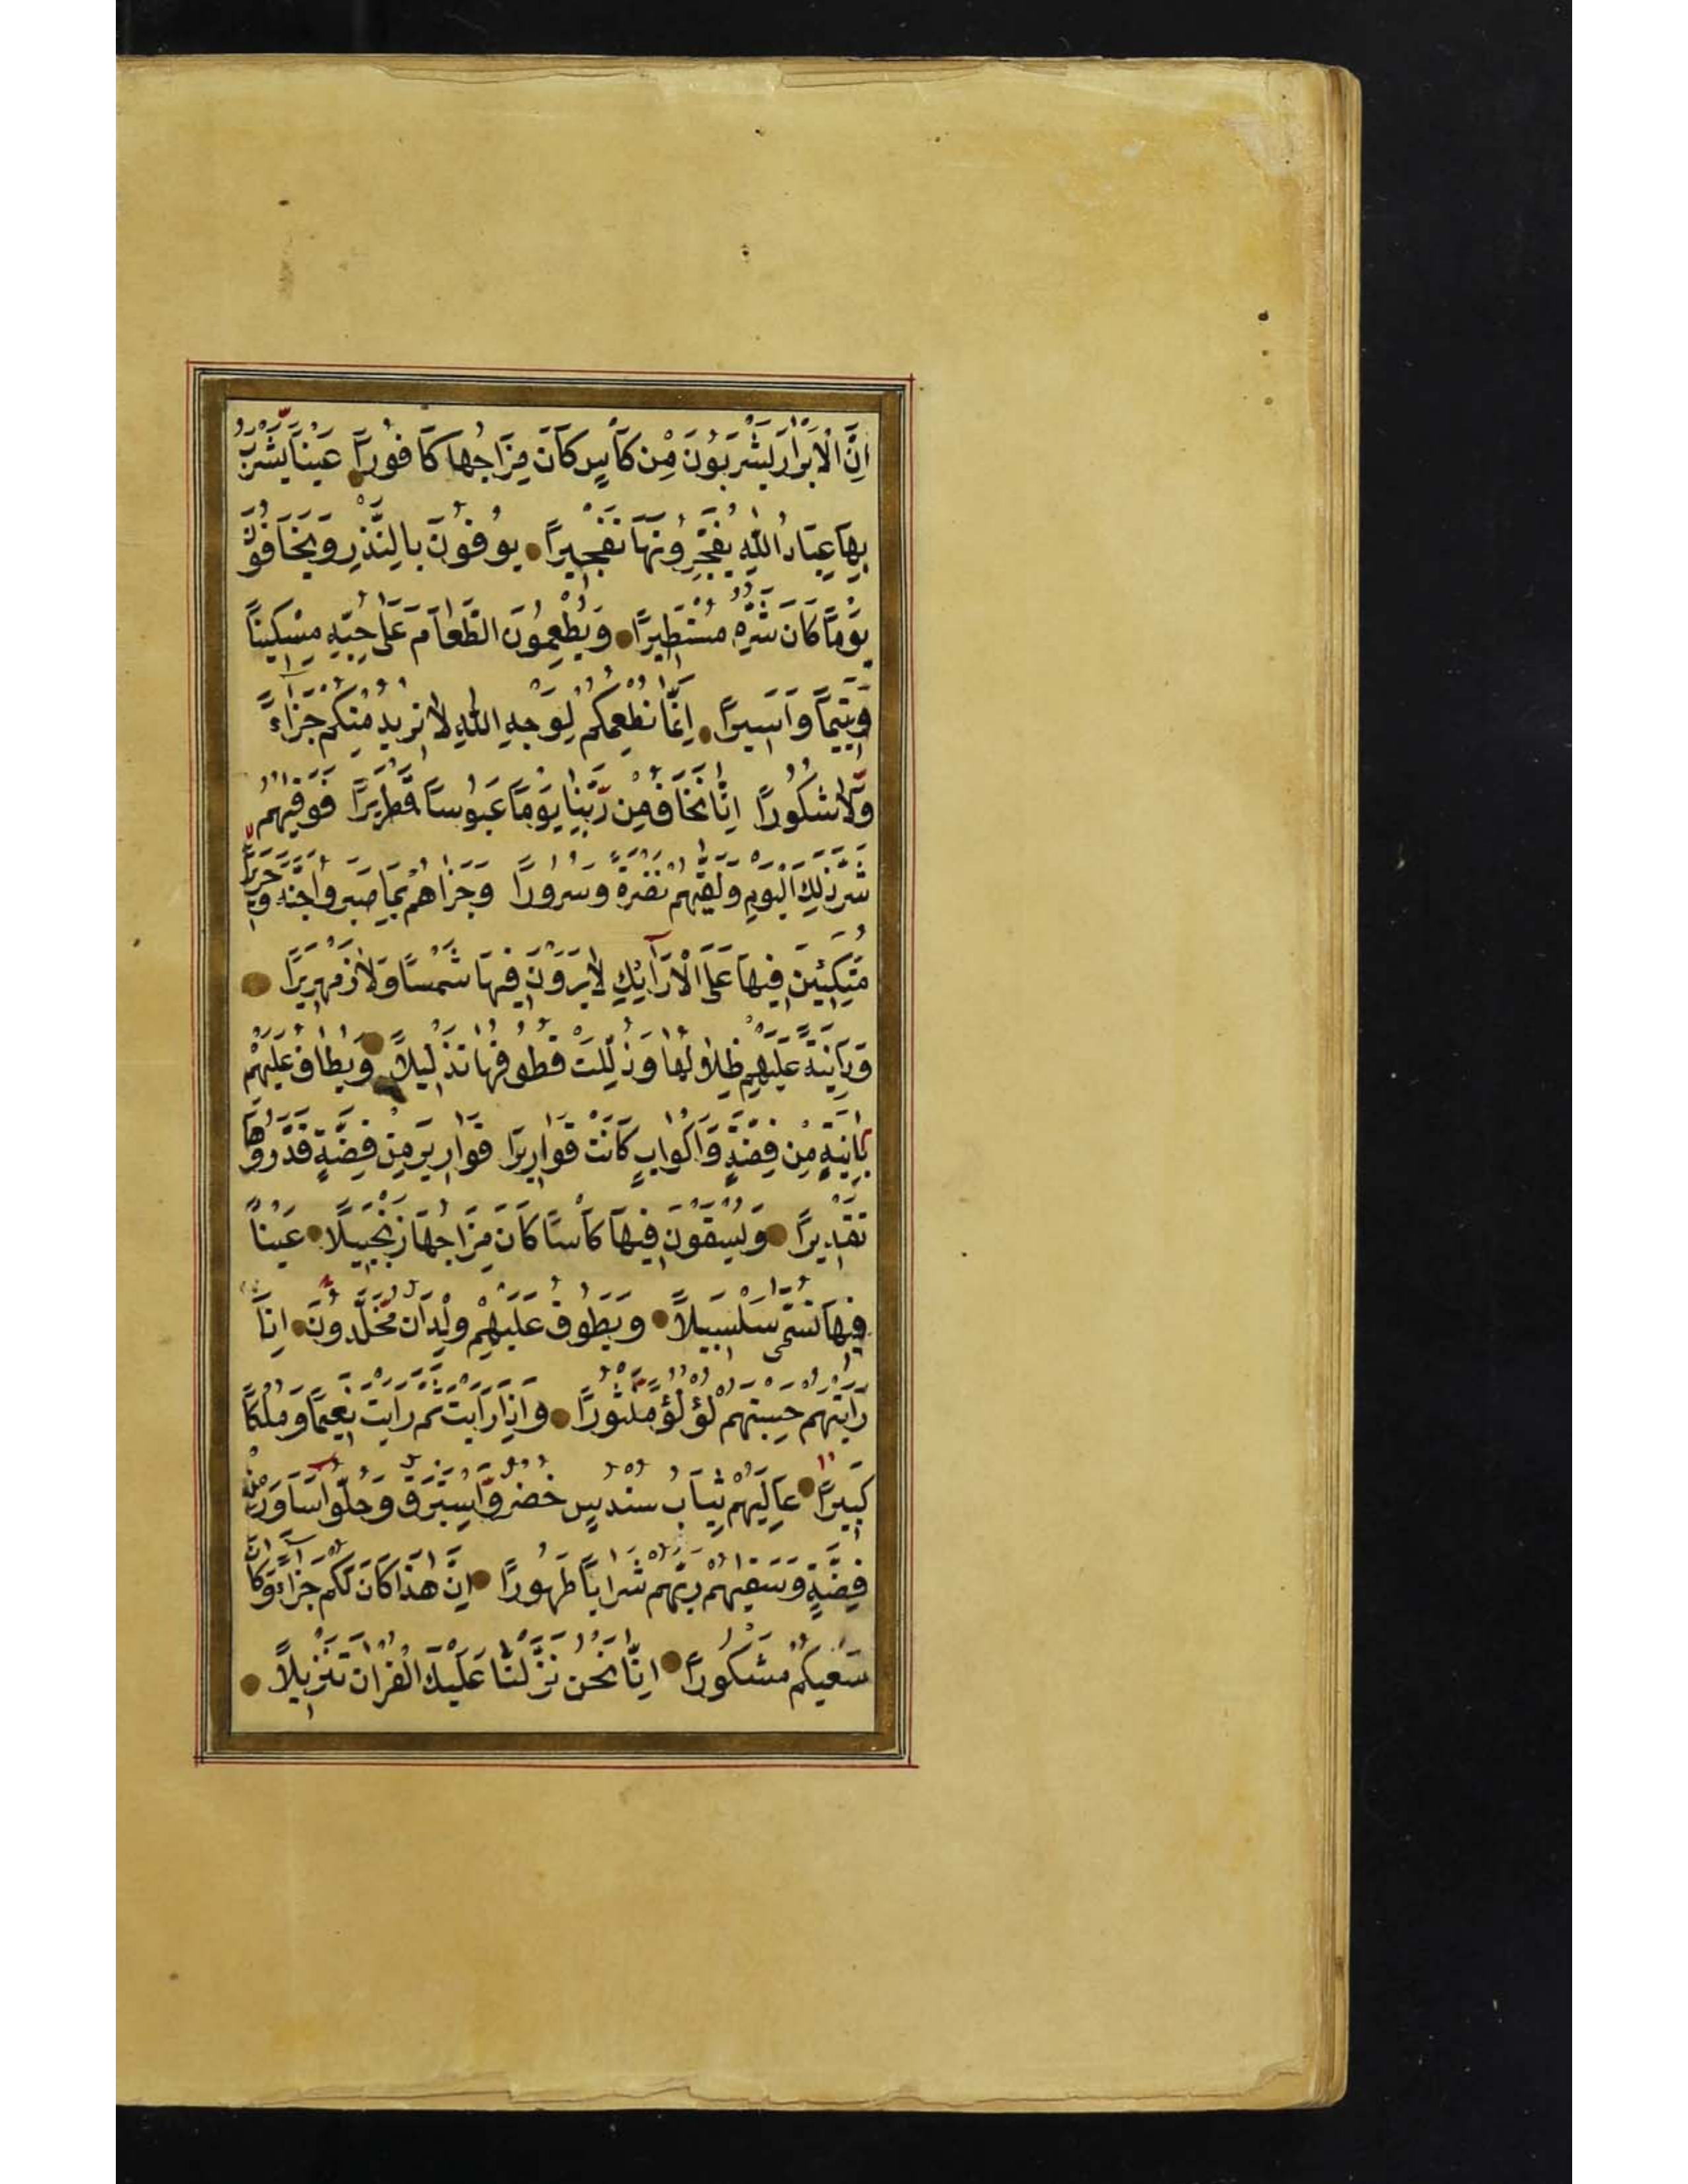 اِنَّ الْاَبْرَارَ يَشْرَبُونَ مِنْ كَأْسٍ كَانَ مِزَاجُهَا كَافُورًا عَيْنًا يَشْرَبُ
بِهَا عِبَادُ اللّٰهِ يُفَجِّرُونَهَا تَفْجِيرًا يُوفُونَ بِالنَّذْرِ وَيَخَافُونَ
يَوْمًا كَانَ شَرُّهُ مُسْتَطِيرًا وَيُطْعِمُونَ الطَّعَامَ عَلٰى حُبِّهِ مِسْكِينًا
وَيَتِيمًا وَاَسِيرًا اِنَّمَا نُطْعِمُكُمْ لِوَجْهِ اللّٰهِ لَا نُرِيدُ مِنْكُمْ جَزَآءً
وَلَا شُكُورًا اِنَّا نَخَافُ مِنْ رَبِّنَا يَوْمًا عَبُوسًا قَمْطَرِيرًا فَوَقٰيهُمُ
شَرَّ ذٰلِكَ الْيَوْمِ وَلَقّٰيهُمْ نَضْرَةً وَسُرُورًا وَجَزٰاهُمْ بِمَا صَبَرُوا جَنَّةً وَحَرِيرًا
مُتَّكِئِينَ فِيهَا عَلَى الْاَرَآئِكِ لَا يَرَوْنَ فِيهَا شَمْسًا وَلَا زَمْهَرِيرًا
وَدَانِيَةً عَلَيْهِمْ ظِلَالُهَا وَذُلِّلَتْ قُطُوفُهَا تَذْلِيلًا وَيُطَافُ عَلَيْهِمْ
بِاٰنِيَةٍ مِنْ فِضَّةٍ وَاَكْوَابٍ كَانَتْ قَوَارِيرَا قَوَارِيرَ مِنْ فِضَّةٍ قَدَّرُوهَا
تَقْدِيرًا وَيُسْقَوْنَ فِيهَا كَأْسًا كَانَ مِزَاجُهَا زَنْجَبِيلًا عَيْنًا
فِيهَا تُسَمّٰى سَلْسَبِيلًا وَيَطُوفُ عَلَيْهِمْ وِلْدَانٌ مُخَلَّدُونَ اِذَا
رَاَيْتَهُمْ حَسِبْتَهُمْ لُؤْلُؤًا مَنْثُورًا وَاِذَا رَاَيْتَ ثَمَّ رَاَيْتَ نَعِيمًا وَمُلْكًا
كَبِيرًا عَالِيَهُمْ ثِيَابُ سُنْدُسٍ خُضْرٌ وَاِسْتَبْرَقٌ وَحُلُّوا اَسَاوِرَ مِنْ
فِضَّةٍ وَسَقٰيهُمْ رَبُّهُمْ شَرَابًا طَهُورًا اِنَّ هٰذَا كَانَ لَكُمْ جَزَآءً وَكَانَ
سَعْيُكُمْ مَشْكُورًا اِنَّا نَحْنُ نَزَّلْنَا عَلَيْكَ الْقُرْاٰنَ تَنْزِيلًا